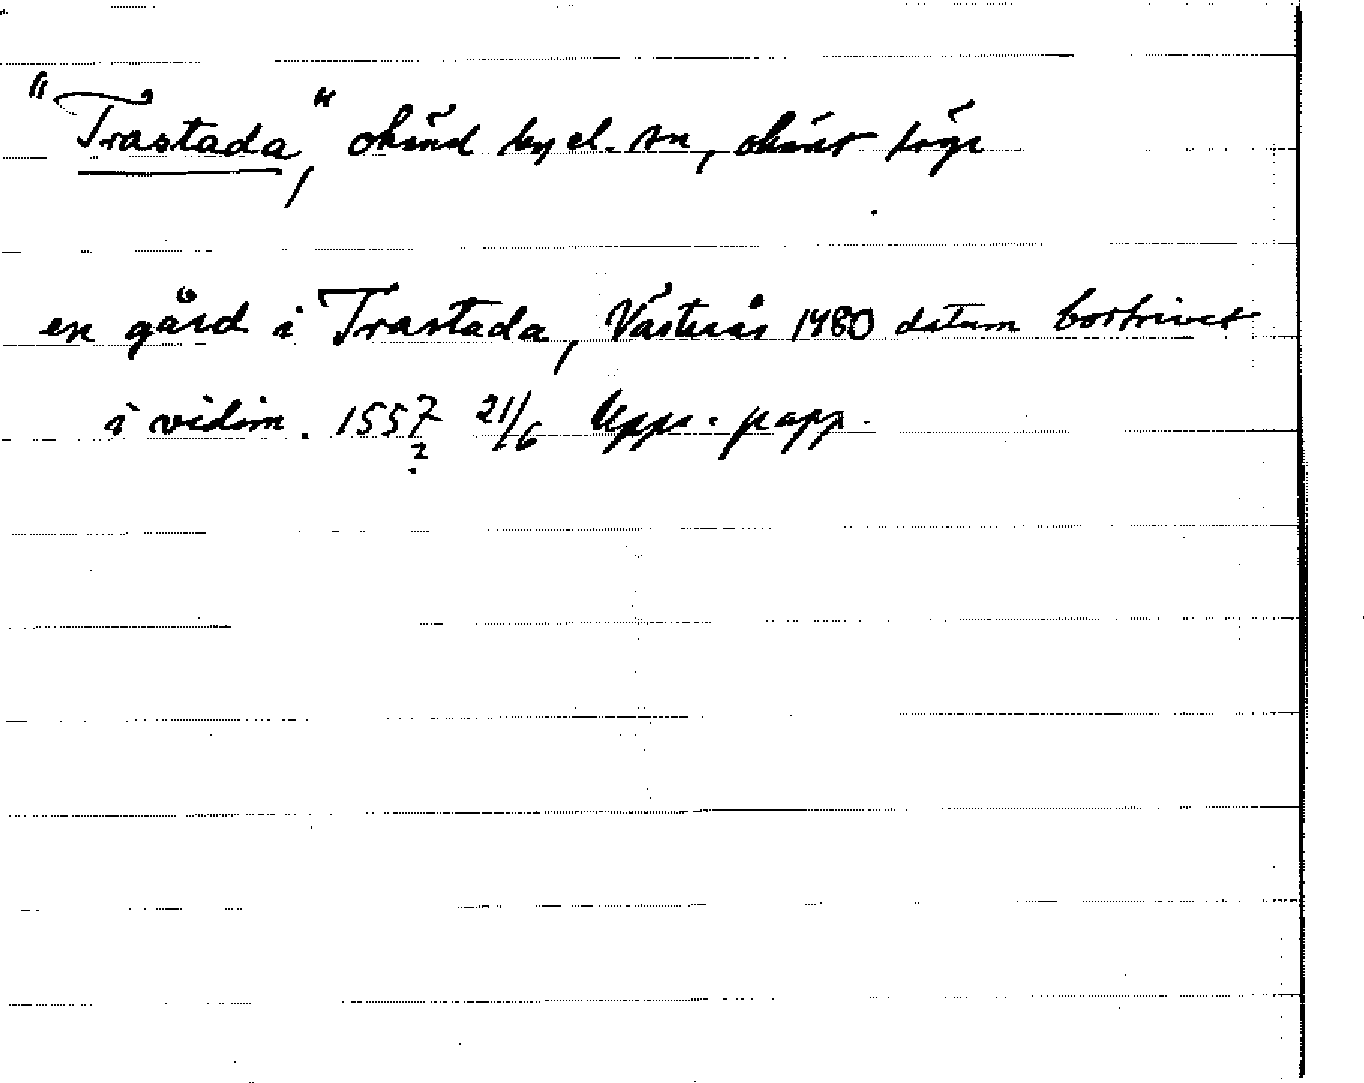 "Trastada", okänd by el. sn, okänt läge
en gård i Trastada, Västerås 1480 datum bortrivet
i vidim. 1557 21/6 Upps. papp.
?